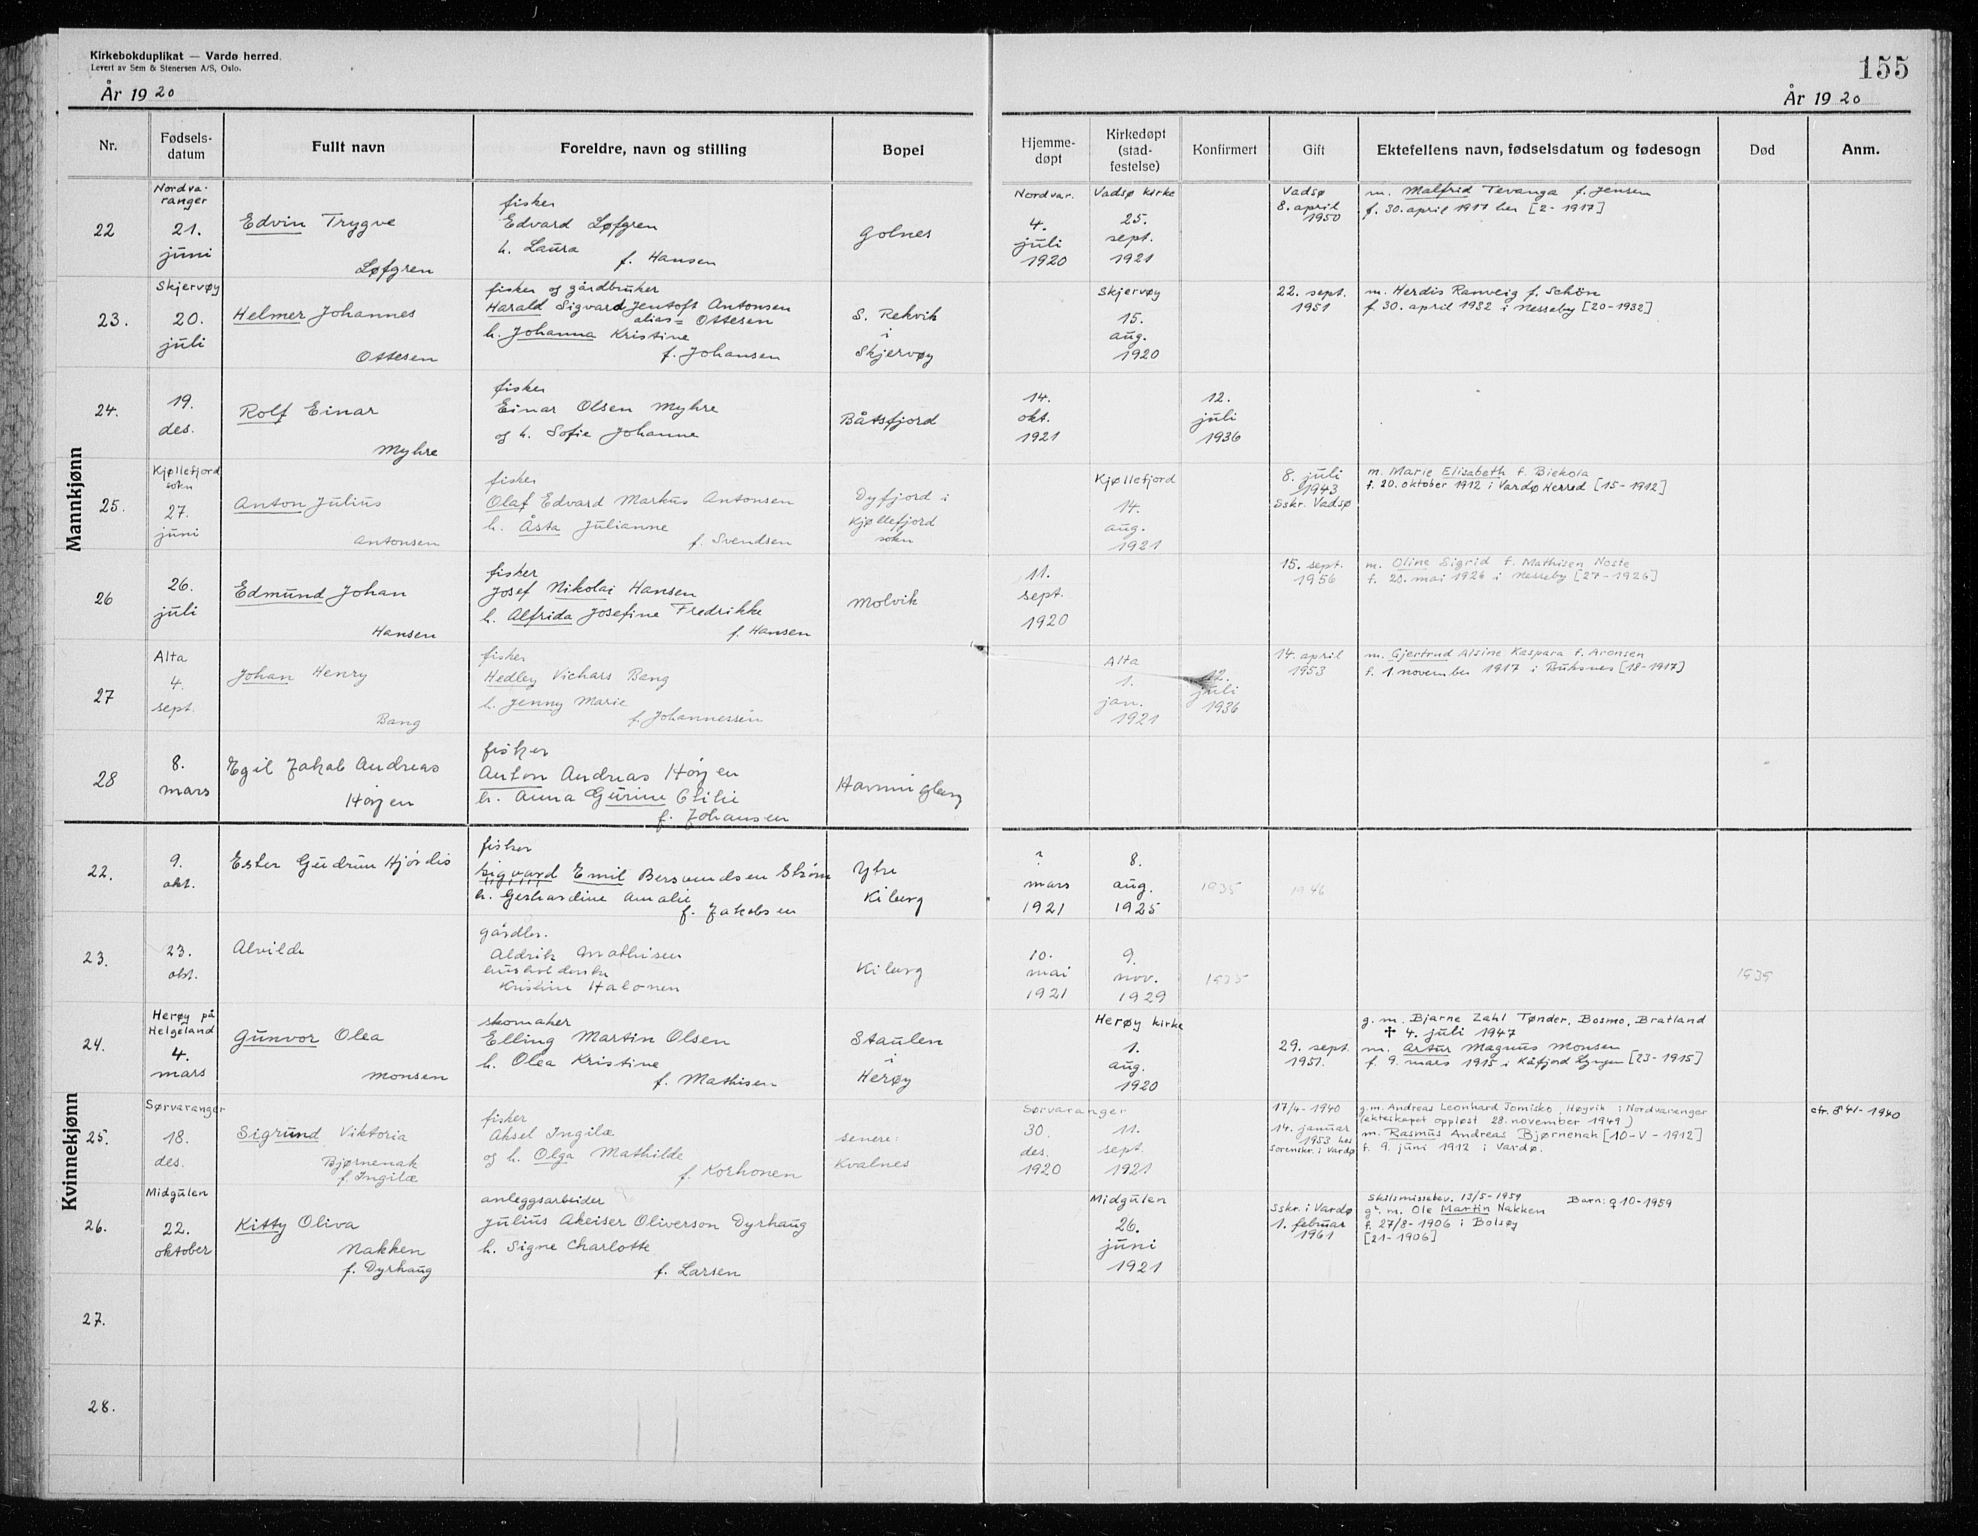 Kirkebokduplikat — Vardø herred.
Levert av Sem & Stenersen A/S, Oslo.
År 19 20
155
År 19 20
Nr.
Fødsels-
datum
Fullt navn
Foreldre, navn og stilling
Bopel
Hjemme-
døpt
Kirkedøpt
(stad-
festelse)
Konfirmert
Gift
Ektefellens navn, fødselsdatum og fødesogn
Død
Anm.
Mannkjønn
22
Nordva-
ranger
21.
juni
Edvin Trygve
Løfgren
fisker
Edvard Løfgren
h. Laura
f. Hansen
Golnes
Nordvar.
4.
juli
1920
Vadsø kirke
25.
sept.
1921
Vadsø
8. april
1950
m. Malfrid Tevanga f. Jensen
f. 30. april 1917 her [2-1917]
23.
Skjervøy
20.
juli
Helmer Johannes
Ottesen
fisker og gårdbruker
Harald Sigvard Jentoft Antonsen
alias = Ottesen
h. Johanna Kristine
f. Johansen
S. Rekvik
i
Skjervøy
Skjervøy
15.
aug.
1920
22. sept.
1951
m. Herdis Ranveig f. Schøn
f. 30. april 1932 i Nesseby [20-1932]
24.
19.
des.
Rolf Einar
Myhre
fisker
Einar Olsen Myhre
og h. Sofie Johanne
Båtsfjord
14.
okt.
1921
12.
juli
1936
25.
Kjøllefjord
sokn
27.
juni
Anton Julius
Antonsen
fisker
Olaf Edvard Markus Antonsen
h. Åsta Julianne
f. Svendsen
Dyfjord i
Kjøllefjord
sokn
Kjøllefjord
14.
aug.
1921
8. juli
1943
Sskr. Vadsø
m. Marie Elisabeth f. Biekola
f. 20. oktober 1912 i Vardø Herred [15-1912]
26
26.
juli
Edmund Johan
Hansen
fisker
Josef Nikolai Hansen
h. Alfrida Josefine Fredrikke
f. Hansen
Molvik
11.
sept.
1920
15. sept.
1956
m. Oline Sigrid f. Mathisen Noste
f. 20. mai 1926 i Nesseby [27-1926]
27
Alta
4.
sept.
Johan Henry
Bang
fisker
Hedley Vichars Bang
h. Jenny Marie
f. Johannessen
Alta
1.
jan.
1921
12.
juli
1936
14. april
1953
m. Gjertrud Alsine Kaspara f. Aronsen
f. 1. november 1917 i Buksnes [18-1917]
28
8.
mars
Egil Jakob Andreas
Højen
fisker
Anton Andreas Højen
h. Anna Gurine Otilie
f. Johansen
Havningberg
Kvinnekjønn
22.
9.
okt.
Ester Gudrun Hjørdis
fisker
Sigvard Emil Bersvendsen Strøm
h. Gerhardine Amalie
f. Jakobsen
Ytre
Kiberg
?
mars
1921
8.
aug.
1925
1935
1946
23.
23.
okt.
Alvilde
gårdbr.
Aldrik Mathisen
husholderske
Kristine Halonen
Kiberg
10.
mai
1921
9.
nov.
1929
1935
1939
24.
Herøy på
Helgeland
4.
mars
Gunvor Olea
Monsen
skomaker
Elling Martin Olsen
h. Olea Kristine
f. Mathisen
Staulen
i
Herøy
Herøy kirke
1.
aug.
1920
29. sept.
1951.
g. m. Bjarne Zahl Tønder, Bosmo, Bratland
✝ 4. juli 1947
m. Artur Magnus Monsen
f. 9. mars 1915 i Kåfjord Lyngen [23-1915]
25.
Sørvaranger
18.
des.
Sigrund Viktoria
Bjørnenak
f. Ingilæ
fisker
Aksel Ingilæ
og h. Olga Mathilde
f. Korhonen
senere:
Kvalnes
Sørvaranger
30.
des.
1920
11.
sept.
1921
17/4-1940
14. januar
1953 hos
Sorenskr. i Vardø
g.m. Andreas Leonhard Tomisko, Høyvik i Nordvaranger
(ekteskapet oppløst 28. november 1949)
m. Rasmus Andreas Bjørnenak [10-V-1912]
f. 9. juni 1912 i Vardø.
cfr. ♂ 41-1940
26.
Midgulen
22.
oktober
Kitty Oliva
Nakken
f. Dyrhaug
anleggsarbeider
Julius Akeiser Oliverson Dyrhaug
h. Signe Charlotte
f. Larsen
Midgulen
26.
juni
1921
Sskr. i Vardø
1. februar
1961
Skilsmissebev. 13/5-1959
Barn: ♀ 10-1959
g. m. Ole Martin Nakken
f. 27/8-1906 i Bolsøy
[21-1906]
27.
28.